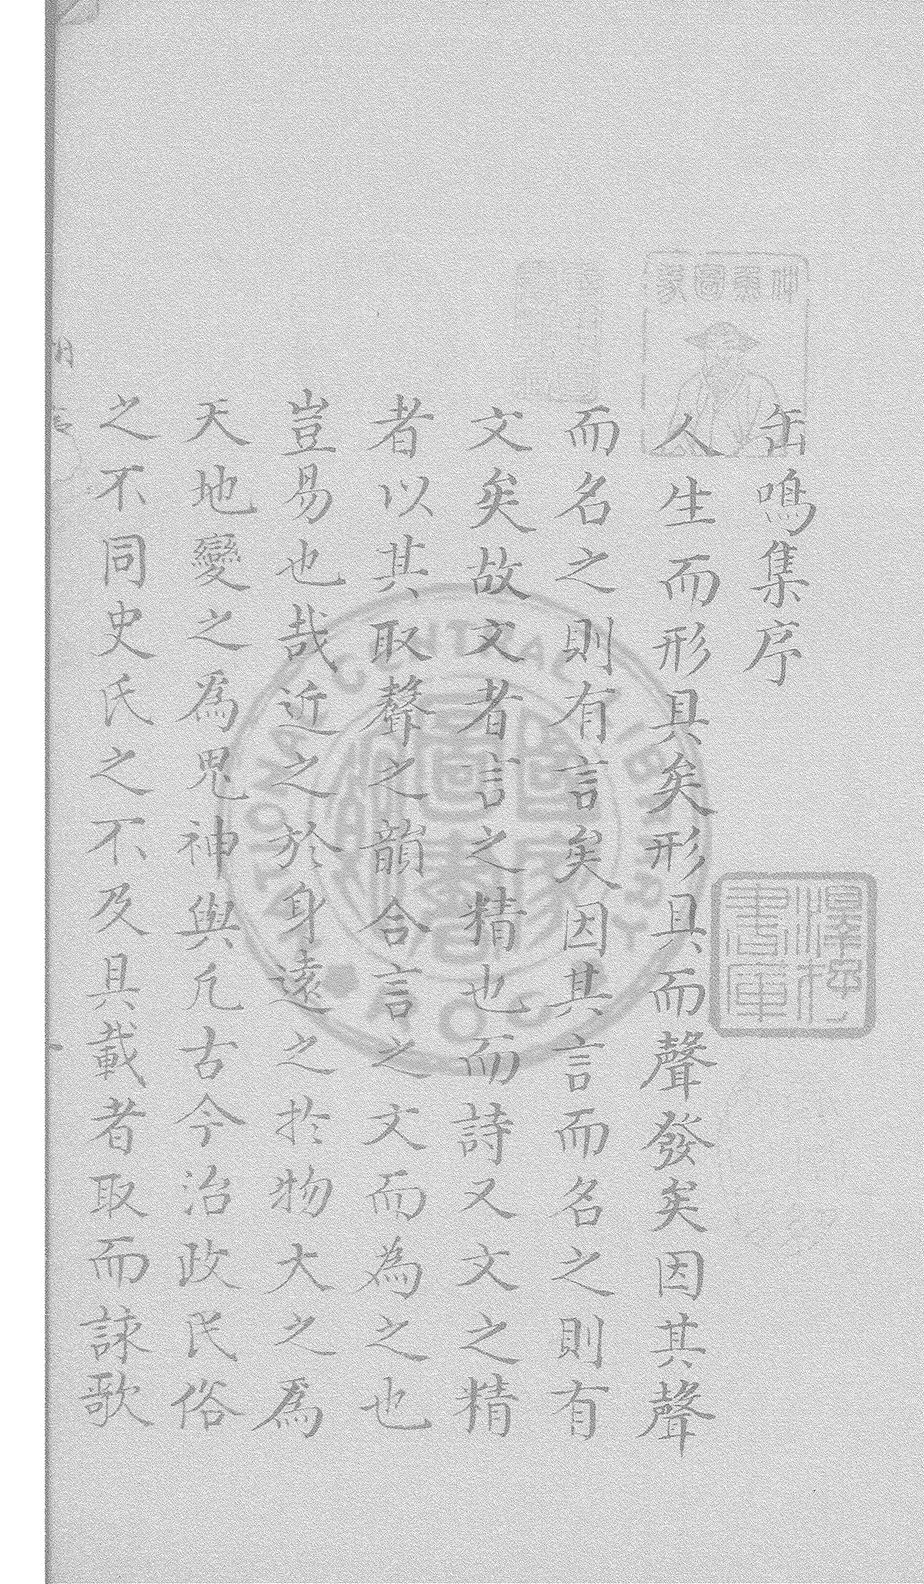 缶鳴集序
人生而形具矣形具而聲發矣因其聲
而名之則有言矣因其言而名之則有
文矣故文者言之精也而詩又文之精
者以其取聲之韻合言之文而為之也
豈易也哉近之於身遠之於物大之爲
天地變之為鬼神與凢古今治政民俗
之不同史氏之不及具載者取而詠歌
澤存書庫
國家圖書館
NATIONAL CENTRAL LIBRARY